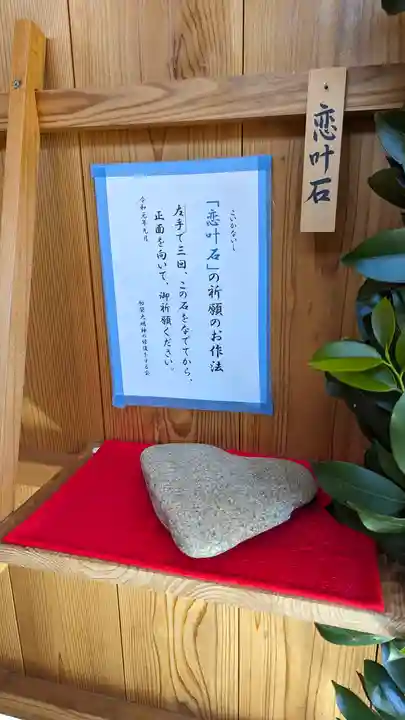 恋叶石
こいかないし
「恋叶石」の祈願のお作法
左手で三回、この石をなでてから、
正面を向いて、御祈願ください。
令和元年九月